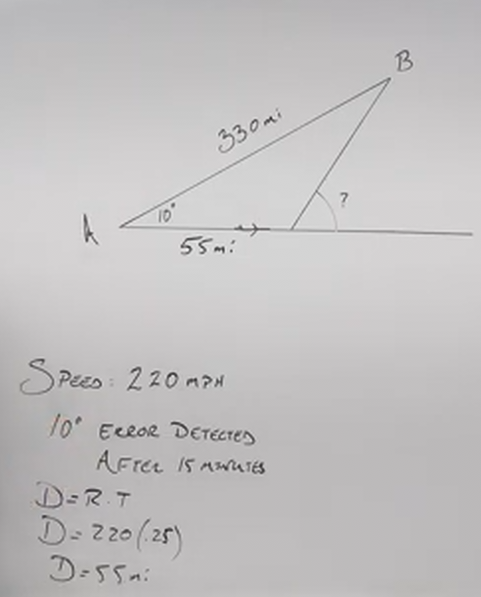 B
330mi
10°
?
A
55mi
SPEED: 220 MPH
10° ERROR DETECTED
AFTER 15 MINUTES
D=R.T
D=220(.25)
D=55mi